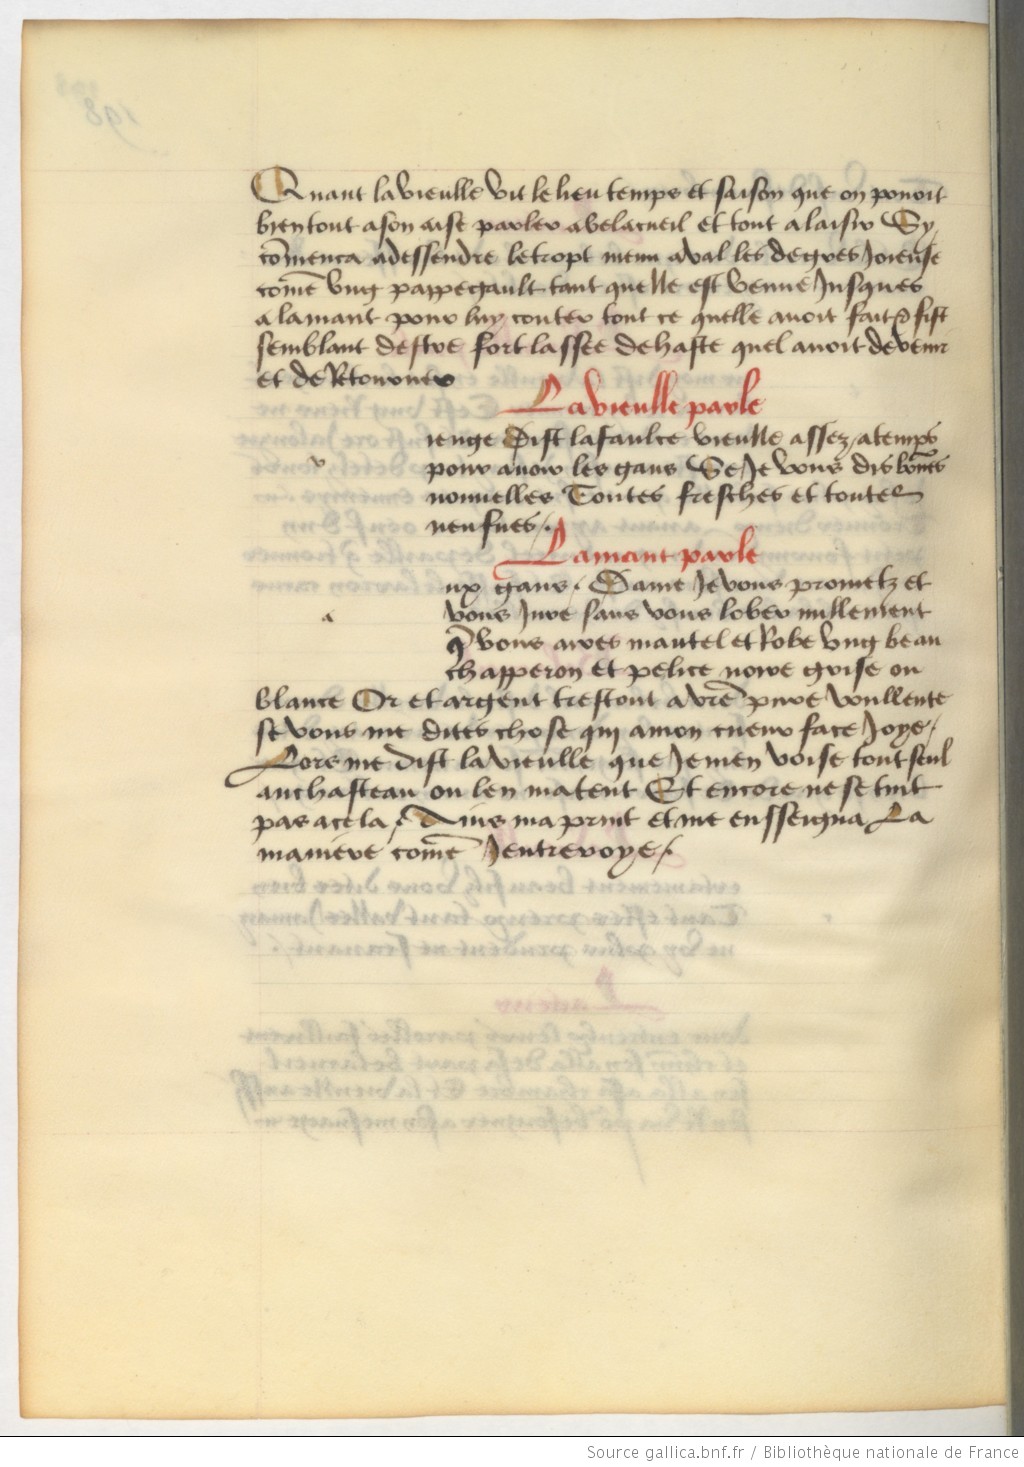 Quant la vieulle vit le lieu temps et saison que on pouoit
bien tout a son aise parler a belacueil et tout a laisir Sy
cōmenca a dessendre le tropt menu aval les degres Joieuse
comē vng pappegault tant quelle est venue Jusques
a lamant pour luy conter tout ce quelle auoit fait & fist
semblant destre fort lassee de haste quel auoit de venir
et de Retourner
La vieulle parle
v
ienge dist la faulce vieulle assez a temps
pour auoir les gans Se Je vous dis bōnes
nouuelles Toutes fresches et toutes
neufues /.
Lamant parle
a
ux gans. Dame Je vous prometz et
vous Jure sans vous lober nullement
q̄ vous ares mantel et Robe vng beau
chapperon et pelice noire grise ou
blance Or et argent trestout a vrē pure voullente
se vous me dites chose qui a mon cueur face Joye /
Lors me dist la vieulle que Je men voise tout seul
au chasteau ou len matent Et encore ne se tint
pas a cela / Ains ma print et me ensseigna La
maniere comē Jentreroye /.
Source gallica.bnf.fr / Bibliothèque nationale de France